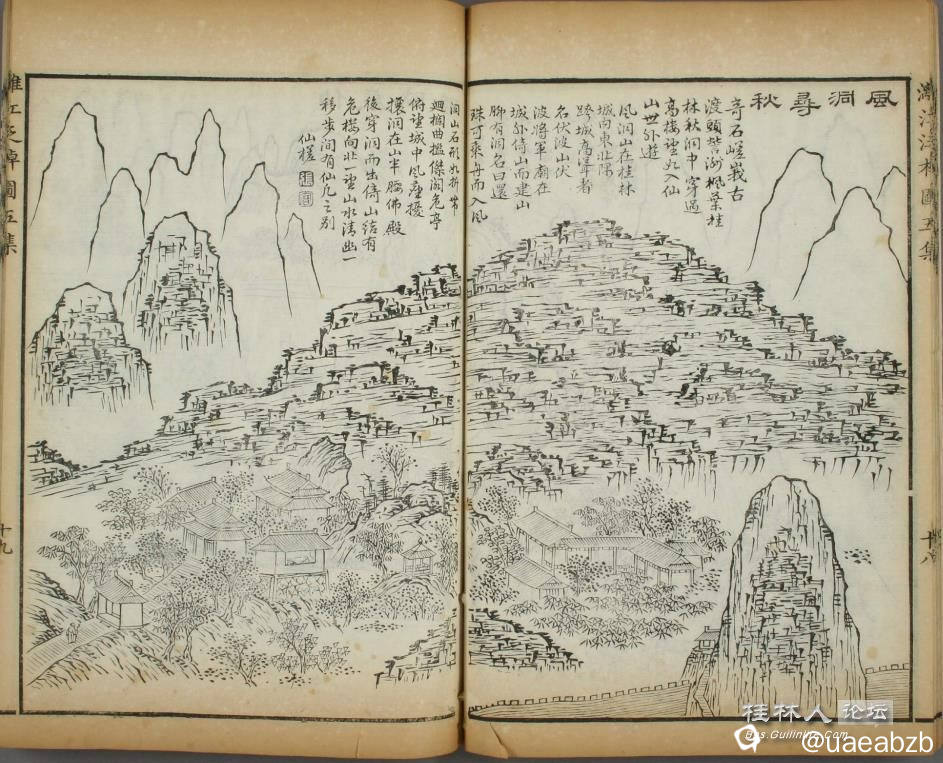 灕江泛棹圖五集
十八
風洞尋秋
奇石嵯峩古
渡頭楓葉桂
林秋洞中穿過
高樓望如入仙
山世外遊
風洞山在桂林
城向東北隅
跨城高聳者
名伏波山伏
波將軍廟在
城外倚山而建山
脚有洞名曰還
珠可乘舟而入風
洞山石形如折帶
廻欄曲檻傑閣危亭
俯望城中風塵擾
攘洞在山半腰佛殿
後穿洞而出倚山結有
危樓向北一望山水清幽一
移步間有仙凡之別
仙槎
灕江泛棹圖五集
十九
桂林人论坛
@uaeabzb